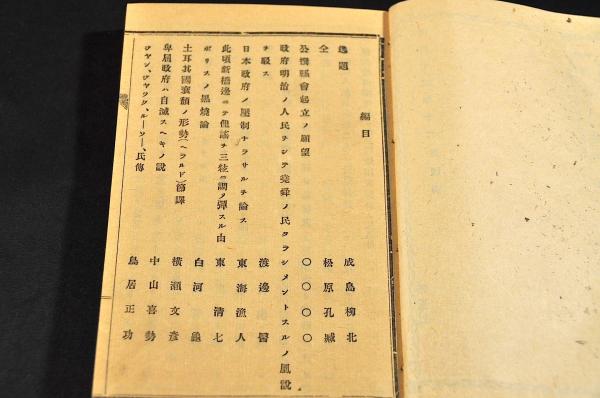 編目
逸題 成島柳北
仝 松原孔城
公撰議會起立ノ願望 〇〇〇〇
政府明治ノ人民ヲシテ堯舜ノ民タラシメントスルノ風說
ヲ駁ス 渡邊
日本政府ノ壓制ナラサルヲ論ス 東海漁人
此頃新橋邊ニテ俚謠ヲ三絃ニ調ヲ彈スル由 東清七
ポリスノ 論 白河
土耳其國衰頽ノ形勢(ヘラルド)節譯 橫瀬文彥
卑屈政府ハ自滅スヘキノ說 中山喜勢
ジヤン、ジヤツク、ルーソー、氏傳 鳥居正功